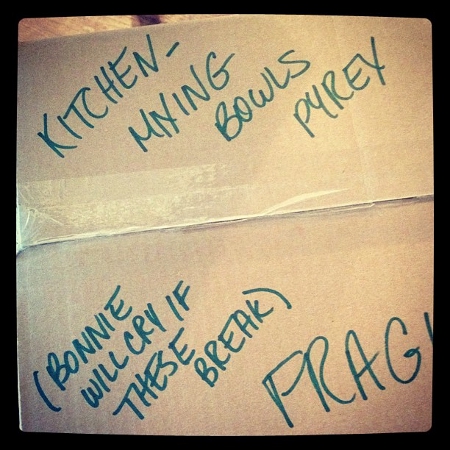 KITCHEN-
MIXING
BOWLS
PYREX
(BONNIE
WILL CRY IF
THESE
BREAK)
FRAGI